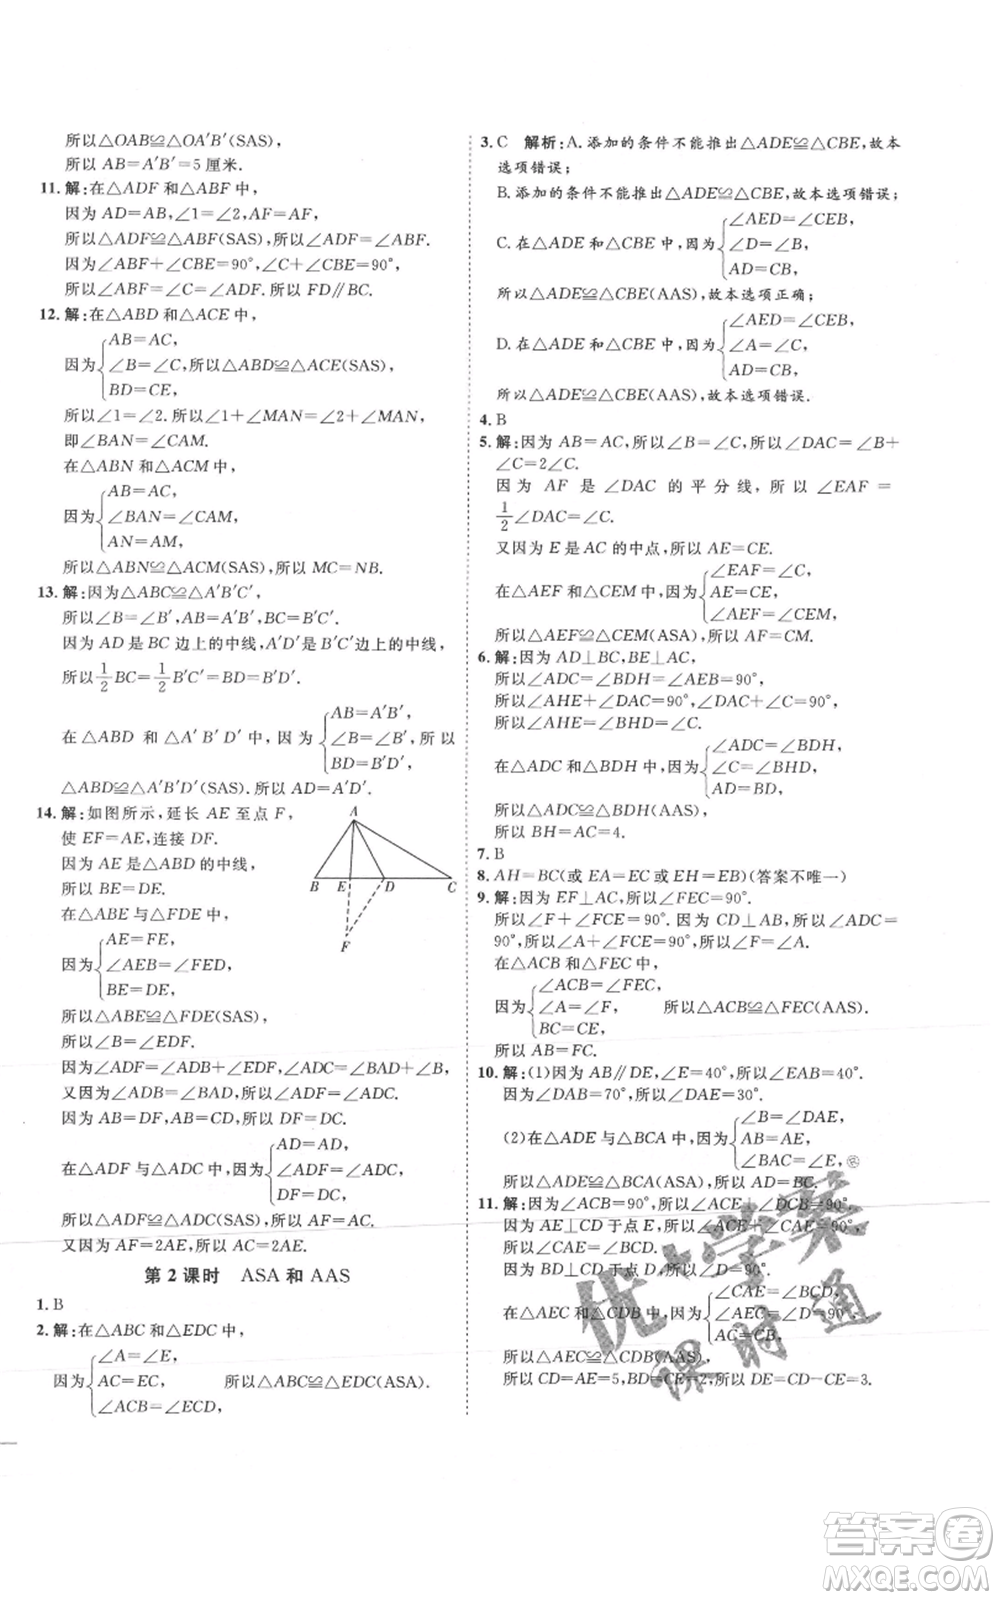 所以△OAB≌△OA′B′(SAS),
所以 AB=A′B′=5 厘米.
11. 解:在△ADF 和△ABF 中,
因为 AD=AB,∠1=∠2,AF=AF,
所以△ADF≌△ABF(SAS),所以∠ADF=∠ABF.
因为∠ABF+∠CBE=90°,∠C+∠CBE=90°,
所以∠ABF=∠C=∠ADF.所以 FD∥BC.
12. 解:在△ABD 和△ACE 中,
AB=AC,
因为 ∠B=∠C,所以△ABD≌△ACE(SAS).
BD=CE,
所以∠1=∠2.所以∠1+∠MAN=∠2+∠MAN,
即∠BAN=∠CAM.
在△ABN 和△ACM 中,
AB=AC,
因为 ∠BAN=∠CAM,
AN=AM,
所以△ABN≌△ACM(SAS).所以 MC=NB.
13. 解:因为△ABC≌△A′B′C′,
所以∠B=∠B′,AB=A′B′,BC=B′C′.
因为 AD 是 BC 边上的中线,A′D′是 B′C′边上的中线,
所以 1/2 BC=1/2 B′C′=BD=B′D′.
AB=A′B′,
在 △ABD 和 △A′B′D′ 中,因 为 ∠B=∠B′,所 以
BD=B′D′,
△ABD≌△A′B′D′(SAS).所以 AD=A′D′.
14. 解:如图所示,延长 AE 至点 F,
使 EF=AE,连接 DF.
因为 AE 是△ABD 的中线,
所以 BE=DE.
在△ABE 与△FDE 中,
AE=FE,
因为 ∠AEB=∠FED,
BE=DE,
所以△ABE≌△FDE(SAS),
所以∠B=∠EDF.
A
B E D C
F
因为∠ADF=∠ADB+∠EDF,∠ADC=∠BAD+∠B,
又因为∠ADB=∠BAD,所以∠ADF=∠ADC.
因为 AB=DF,AB=CD,所以 DF=DC.
AD=AD,
在△ADF 与△ADC 中,因为 ∠ADF=∠ADC,
DF=DC,
所以△ADF≌△ADC(SAS),所以 AF=AC.
又因为 AF=2AE,所以 AC=2AE.
第 2 课时 ASA 和 AAS
1. B
2. 解:在△ABC 和△EDC 中,
∠A=∠E,
因为 AC=EC, 所以△ABC≌△EDC(ASA).
∠ACB=∠ECD,
3. C 解析:A. 添加的条件不能推出△ADE≌△CBE,故本
选项错误;
B. 添加的条件不能推出△ADE≌△CBE,故本选项错误;
∠AED=∠CEB,
C. 在△ADE 和△CBE 中,因为 ∠D=∠B,
AD=CB,
所以△ADE≌△CBE(AAS),故本选项正确;
∠AED=∠CEB,
D. 在△ADE 和△CBE 中,因为 ∠A=∠C,
AD=CB,
所以△ADE≌△CBE(AAS),故本选项错误.
4. B
5. 解:因为 AB=AC,所以∠B=∠C,所以∠DAC=∠B+
∠C=2∠C.
因 为 AF 是 ∠DAC 的 平 分 线,所 以 ∠EAF =
1/2 ∠DAC=∠C.
又因为 E 是 AC 的中点,所以 AE=CE.
∠EAF=∠C,
在△AEF 和△CEM 中,因为 AE=CE,
∠AEF=∠CEM,
所以△AEF≌△CEM(ASA),所以 AF=CM.
6. 解:因为 AD⊥BC,BE⊥AC,
所以∠ADC=∠BDH=∠AEB=90°,
所以∠AHE+∠DAC=90°,∠DAC+∠C=90°,
所以∠AHE=∠BHD=∠C.
∠ADC=∠BDH,
在△ADC 和△BDH 中,因为 ∠C=∠BHD,
AD=BD,
所以△ADC≌△BDH(AAS),
所以 BH=AC=4.
7. B
8. AH=BC(或 EA=EC 或 EH=EB)(答案不唯一)
9. 解:因为 EF⊥AC,所以∠FEC=90°,
所以∠F+∠FCE=90°.因为 CD⊥AB,所以∠A+∠FCE=
90°,所以∠A+∠FCE=90°,所以∠F=∠A.
在△ACB 和△FEC 中,
∠ACB=∠FEC,
因为 ∠A=∠F, 所以△ACB≌△FEC(AAS),
BC=CE,
所以 AB=FC.
10. 解:(1)因为 AB∥DE,∠E=40°,所以∠EAB=40°.
因为∠DAB=70°,所以∠DAE=30°.
∠B=∠DAE,
(2)在△ADE 与△BCA 中,因为 AB=AE,
∠BAC=∠E,
所以△ADE≌△BCA(ASA),所以 AD=BC.
11. 解:因为∠ACB=90°,所以∠ACE+∠DCB=90°.
因为 AE⊥CD 于点 E,所以∠ACE+∠CAE=90°,
所以∠CAE=∠DCB.
因为 BD⊥CD 于点 D,所以∠D=90°.
∠CAE=∠BCD,
在△AEC 和△CDB 中,因为 ∠AEC=∠D,
AC=CB,
所以△AEC≌△CDB(AAS),
所以 CD=AE=5,BD=CE=2,所以 DE=CD-CE=3.
优+学案
课时通
答案卷
MXQE.COM